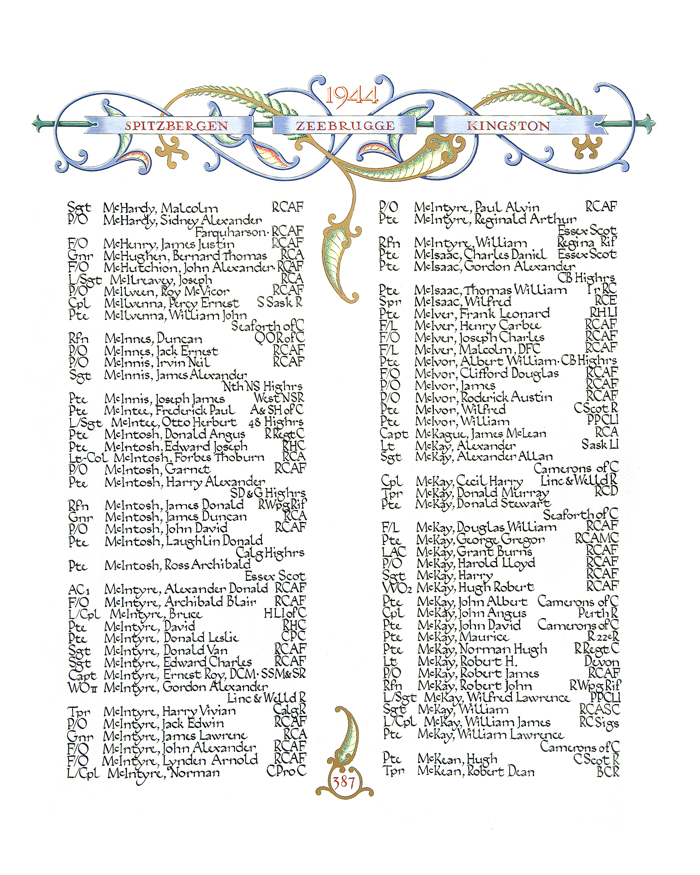 1944
SPITZBERGEN ZEEBRUGGE KINGSTON
Sgt McHardy, Malcolm RCAF
P/O McHardy, Sidney Alexander
Farquharson · RCAF
F/O McHenry, James Justin RCAF
Gnr McHughen, Bernard Thomas RCA
F/O McHutchion, John Alexander · RCAF
L/Sgt McIlreavey, Joseph RCA
P/O McIlveen, Roy McVicor RCAF
Cpl McIlvenna, Percy Ernest S Sask R
Pte McIlvenna, William John
Seaforth of C
Rfn McInnes, Duncan QOR of C
P/O McInnes, Jack Ernest RCAF
P/O McInnis, Irvin Neil RCAF
Sgt McInnis, James Alexander
Nth NS Highrs
Pte McInnis, Joseph James West NSR
Pte McIntee, Frederick Paul A & SH of C
L/Sgt McIntee, Otto Herbert 48 Highrs
Pte McIntosh, Donald Angus R Regt C
Pte McIntosh, Edward Joseph RHC
Lt-Col McIntosh, Forbes Thoburn RCA
P/O McIntosh, Garnet RCAF
Pte McIntosh, Harry Alexander
SD & G Highrs
Rfn McIntosh, James Donald RWpg Rif
Gnr McIntosh, James Duncan RCA
P/O McIntosh, John David RCAF
Pte McIntosh, Laughlin Donald
Calg Highrs
Pte McIntosh, Ross Archibald
Essex Scot
AC1 McIntyre, Alexander Donald RCAF
F/O McIntyre, Archibald Blair RCAF
L/Cpl McIntyre, Bruce HLI of C
Pte McIntyre, David RHC
Pte McIntyre, Donald Leslie CPC
Sgt McIntyre, Donald Van RCAF
Sgt McIntyre, Edward Charles RCAF
Capt McIntyre, Ernest Roy, DCM · SSM & SR
WO II McIntyre, Gordon Alexander
Linc & Welld R
Tpr McIntyre, Harry Vivian Calg R
P/O McIntyre, Jack Edwin RCAF
Gnr McIntyre, James Lawrene RCA
F/O McIntyre, John Alexander RCAF
F/O McIntyre, Lynden Arnold RCAF
L/Cpl McIntyre, Norman C Pro C
P/O McIntyre, Paul Alvin RCAF
Pte McIntyre, Reginald Arthur
Essex Scot
Rfn McIntyre, William Regina Rif
Pte McIsaac, Charles Daniel Essex Scot
Pte McIsaac, Gordon Alexander
CB Highrs
Pte McIsaac, Thomas William Ir RC
Spr McIsaac, Wilfred RCE
Pte McIver, Frank Leonard RHLI
F/L McIver, Henry Carbee RCAF
F/O McIver, Joseph Charles RCAF
F/L McIver, Malcolm, DFC RCAF
Pte McIvor, Albert William · CB Highrs
F/O McIvor, Clifford Douglas RCAF
P/O McIvor, James RCAF
P/O McIvor, Roderick Austin RCAF
Pte McIvor, Wilfred C Scot R
Pte McIvor, William PPCLI
Capt McKague, James McLean RCA
Lt McKay, Alexander Sask LI
Sgt McKay, Alexander Allan
Camerons of C
Cpl McKay, Cecil Harry Linc & Welld R
Tpr McKay, Donald Murray RCD
Pte McKay, Donald Stewart
Seaforth of C
F/L McKay, Douglas William RCAF
Pte McKay, George Gregor RCAMC
LAC McKay, Grant Burns RCAF
P/O McKay, Harold Lloyd RCAF
Sgt McKay, Harry RCAF
WO2 McKay, Hugh Robert RCAF
Pte McKay, John Albert Camerons of C
Cpl McKay, John Angus Perth R
Pte McKay, John David Camerons of C
Pte McKay, Maurice R 22e R
Pte McKay, Norman Hugh R Regt C
Lt McKay, Robert H. Devon
P/O McKay, Robert James RCAF
Rfn McKay, Robert John RWpg Rif
L/Sgt McKay, Wilfred Lawrence PPCLI
Sgt McKay, William RCASC
L/Cpl McKay, William James RC Sigs
Pte McKay, William Lawrence
Camerons of C
Pte McKean, Hugh C Scot R
Tpr McKean, Robert Dean BCR
387